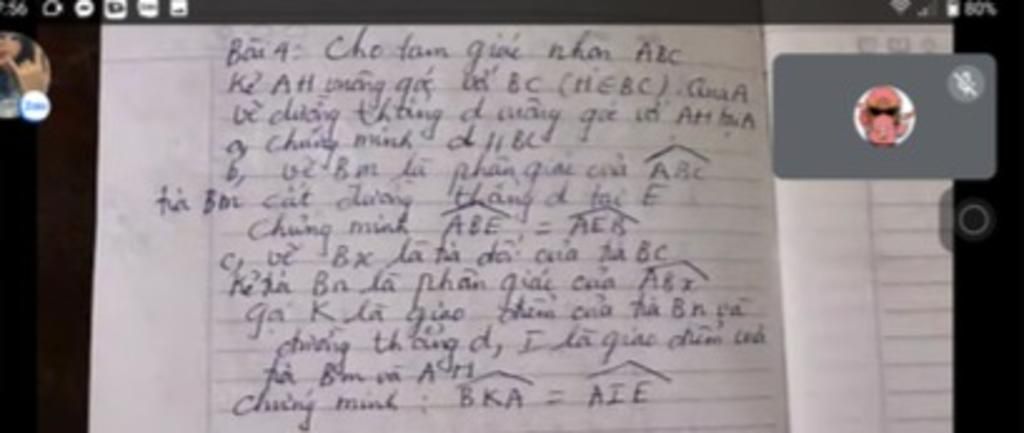 7:56 80%
Bài 4: Cho tam giác nhọn ABC
Kẻ AH vuông góc với BC (H∈BC). Qua A
vẽ đường thẳng d vuông góc với AH tại A
a, Chứng minh d // BC
b, vẽ Bm là phân giác của ABC
tia Bm cắt đường thẳng d tại E
Chứng minh ABE = AEB
c, vẽ Bx là tia đối của tia BC
Kẻ tia Bn là phân giác của ABx
Gọi K là giao điểm của tia Bn và
đường thẳng d, I là giao điểm của
tia Bm và AH
Chứng minh: BKA = AIE